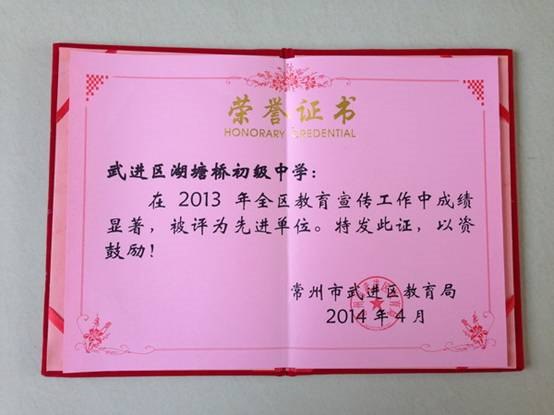 荣誉证书
HONORARY CREDENTIAL
武进区湖塘桥初级中学：
在 2013 年全区教育宣传工作中成绩
显著，被评为先进单位。特发此证，以资
鼓励！
常州市武进区教育局
2014 年 4 月